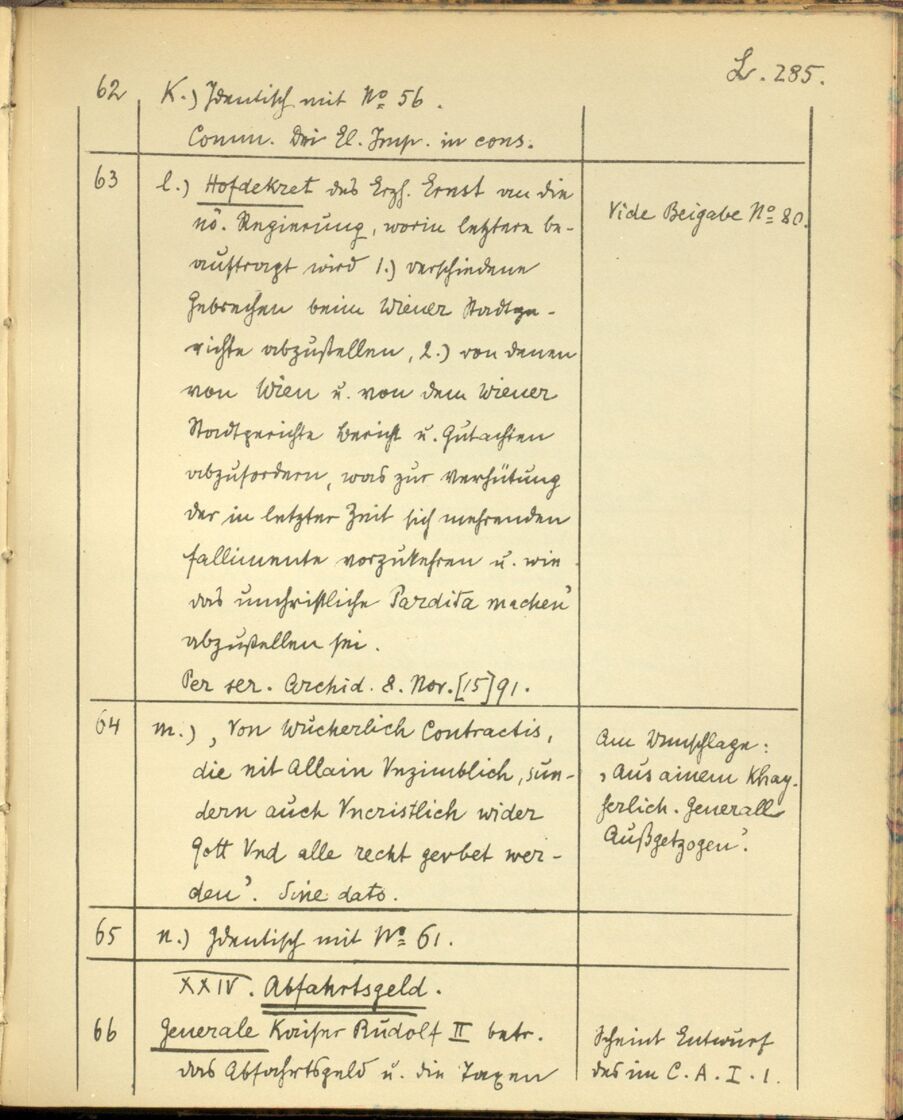 L. 285.
62 K.) Identisch mit No 56.
Comm. Dni El. Imp. in cons.
63 l.) Hofdekret des Erzh. Ernst an die
nö. Regierung, worin letztere be-
auftragt wird 1.) verschiedene
Gebrechen beim Wiener Stadtge-
richte abzustellen, 2.) von denen
von Wien u. von dem Wiener
Stadtgerichte Bericht u. Gutachten
abzufordern, was zur Verhütung
der in letzter Zeit sich mehrenden
Fallimente vorzukehren u. wie
das unchristliche "Pardita machen"
abzustellen sei.
Per ser. Archid. 8. Nov. [15]91.
Vide Beigabe No 80.
64 m.) "Von Wucherlich Contractis,
die nit Allain Vnzimblich, sun-
dern auch Vncristlich wider
Gott Vnd alle recht gevbet wer-
den". Sine dato.
Am Umschlage:
"Aus ainem Khay-
serlich. Generall
Außgetzogen".
65 n.) Identisch mit No 61.
XXIV. Abfahrtsgeld.
66 Generale Kaiser Rudolf II betr.
das Abfahrtsgeld u. die Taxen
Scheint Entwurf
des im C. A. I. 1.